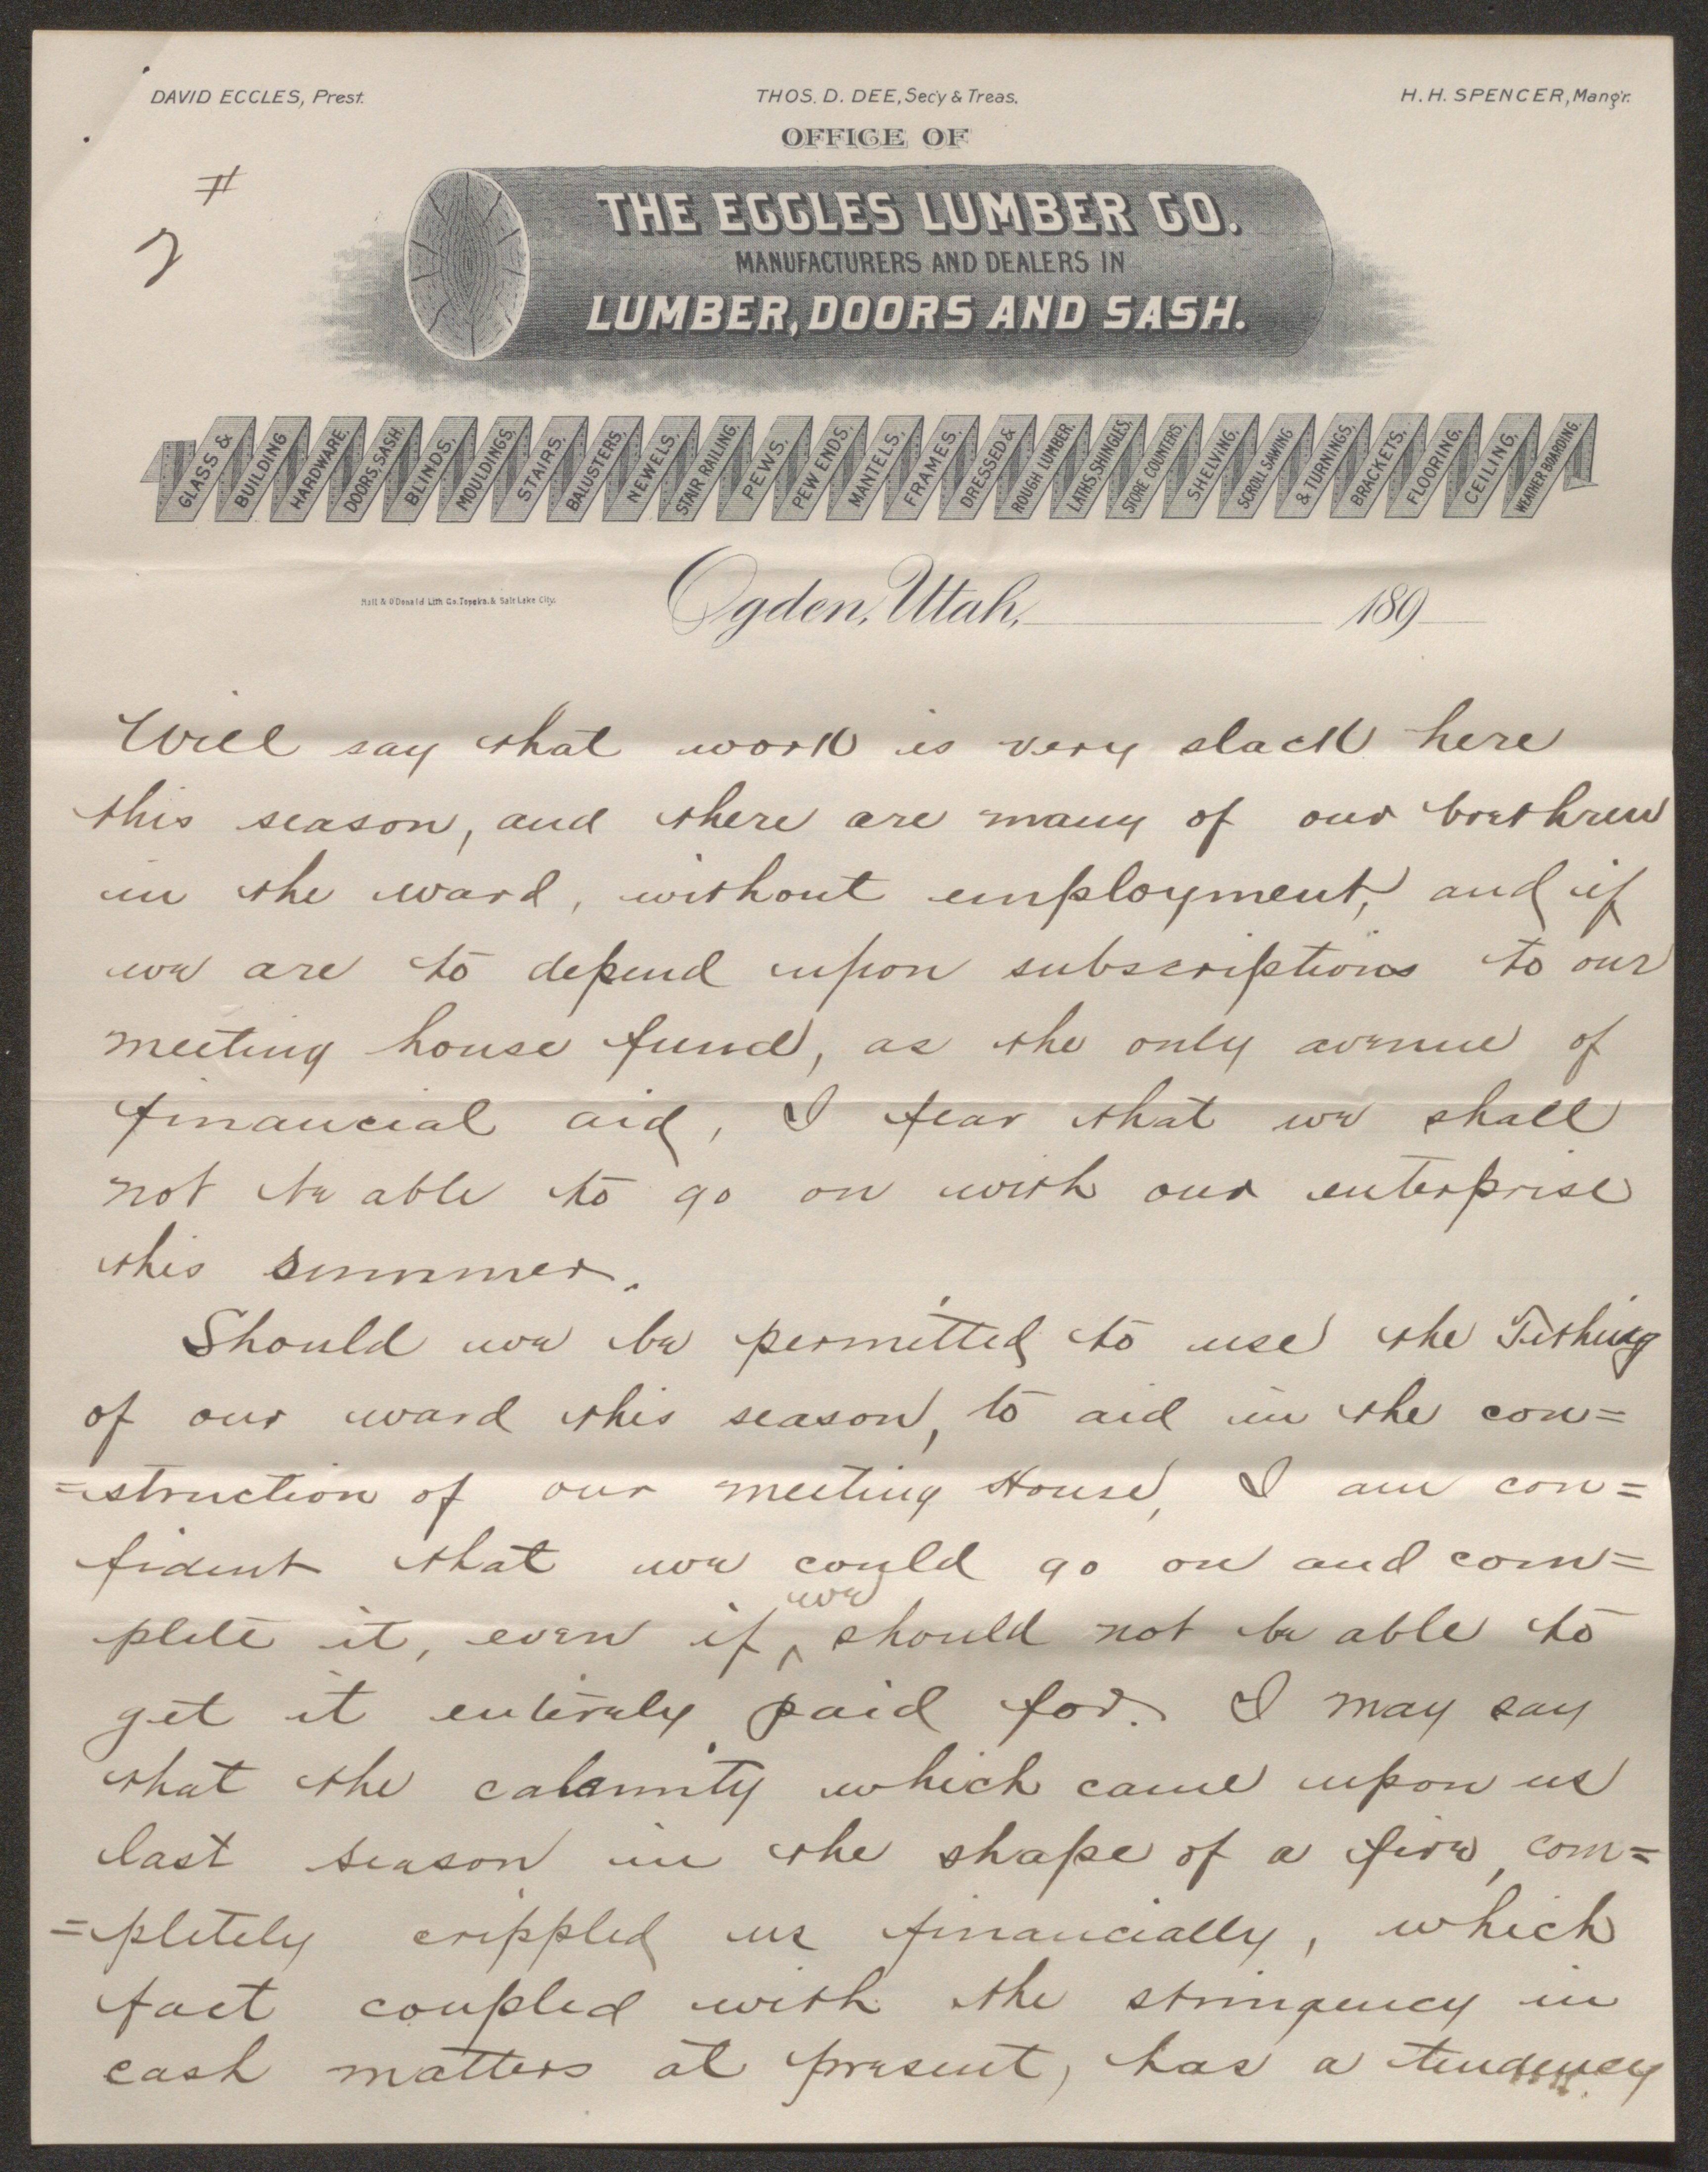 DAVID ECCLES, Prest. THOS. D. DEE, Sec'y & Treas. H. H. SPENCER, Mang'r.
OFFICE OF
THE ECCLES LUMBER CO.
MANUFACTURERS AND DEALERS IN
LUMBER, DOORS AND SASH.
#
2
GLASS & BUILDING HARDWARE. DOORS, SASH, BLINDS, MOULDINGS, STAIRS, BALUSTERS, NEWELS, STAIR RAILING, PEWS, PEW ENDS, MANTELS, FRAMES, DRESSED & ROUGH LUMBER, LATHS, SHINGLES, STORE COUNTERS, SHELVING, SCROLL SAWING & TURNINGS, BRACKETS, FLOORING, CEILING, WEATHER BOARDING.
Hall & O'Donald Lith Co. Topeka. & Salt Lake City.
Ogden, Utah, 189
Will say that work is very slack here
this season, and there are many of our brethren
in the ward, without employment, and if
we are to depend upon subscriptions to our
meeting house fund, as the only avenue of
financial aid, I fear that we shall
not be able to go on with our enterprise
this summer.
Should we be permitted to use the Tithing
of our ward this season, to aid in the con=
=struction of our meeting House, I am con=
fident that we could go on and com=
plete it, even if ^we should not be able to
get it entirely paid for. I may say
that the calamity which came upon us
last season in the shape of a fire, com=
=pletely crippled us financially, which
fact coupled with the stringency in
cash matters at present, has a tendency